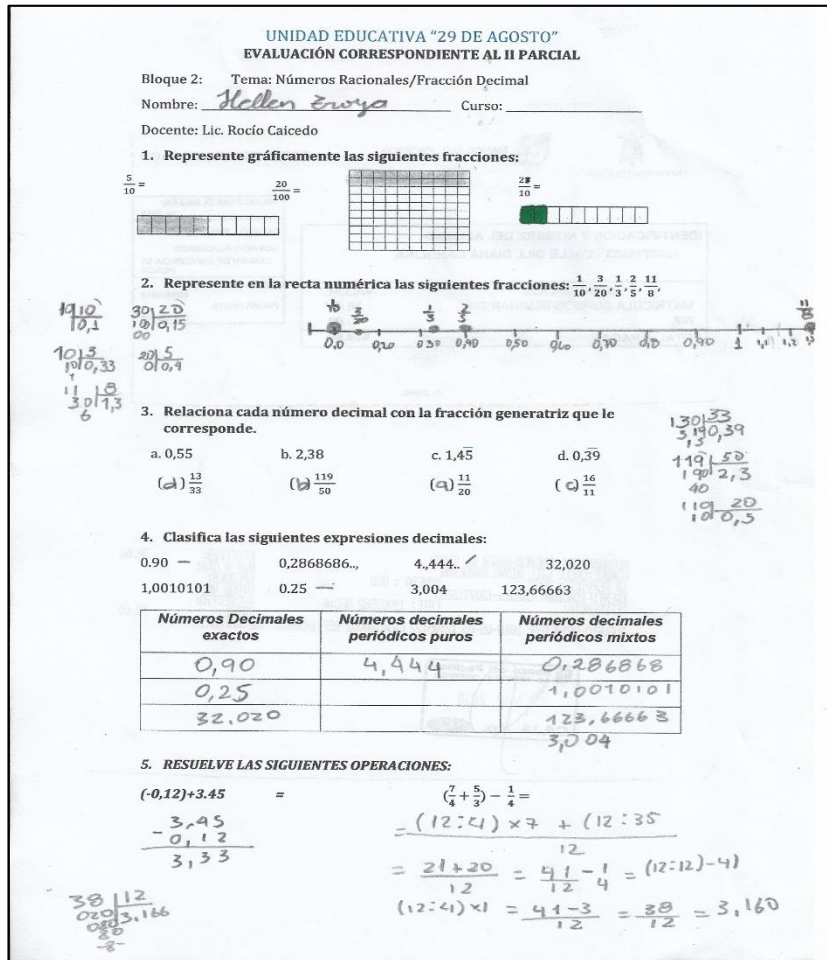 UNIDAD EDUCATIVA “29 DE AGOSTO”
EVALUACIÓN CORRESPONDIENTE AL II PARCIAL
Bloque 2: Tema: Números Racionales/Fracción Decimal
Nombre: Hellen Curso:
Docente: Lic. Rocío Caicedo
1. Represente gráficamente las siguientes fracciones:
5/10 = 20/100 = 2/10 =
2. Represente en la recta numérica las siguientes fracciones: 1/10, 3/20, 1/3, 2/5, 11/8,
1/10 3/20 1/3 2/5 11/8
0,0 0,20 0,30 0,40 0,50 0,60 0,70 0,8 0,90 1 1,1 1,2
10 0,1
30 20 0,15
10 3 0,33
20 5 0,4
11 8
30 1,3
6
3. Relaciona cada número decimal con la fracción generatriz que le
corresponde.
a. 0,55 b. 2,38 c. 1,4̅5̅ d. 0,3̅9̅
(d) 13/33 (b) 119/50 (a) 11/20 (c) 16/11
130 33
0,39
119 50
190 2,3
40
110 20
10 0,5
4. Clasifica las siguientes expresiones decimales:
0.90 — 0,2868686.., 4.,444.. 32,020
1,0010101 0.25 — 3,004 123,66663
Números Decimales exactos Números decimales periódicos puros Números decimales periódicos mixtos
0,90 4,444 0,286868
0,25 1,0010101
32.020 123,66663
3,004
5. RESUELVE LAS SIGUIENTES OPERACIONES:
(-0,12)+3.45 = (7/4 + 5/3) − 1/4 =
3,45
- 0,12
3,33
= (12:4) x 7 + (12:35 / 12
= 21+20 / 12 = 41/12 - 1/4 = (12:12)-41
(12:4) x1 = 41-3 / 12 = 38/12 = 3,160
38 12
020 3,166
080
80
-8-